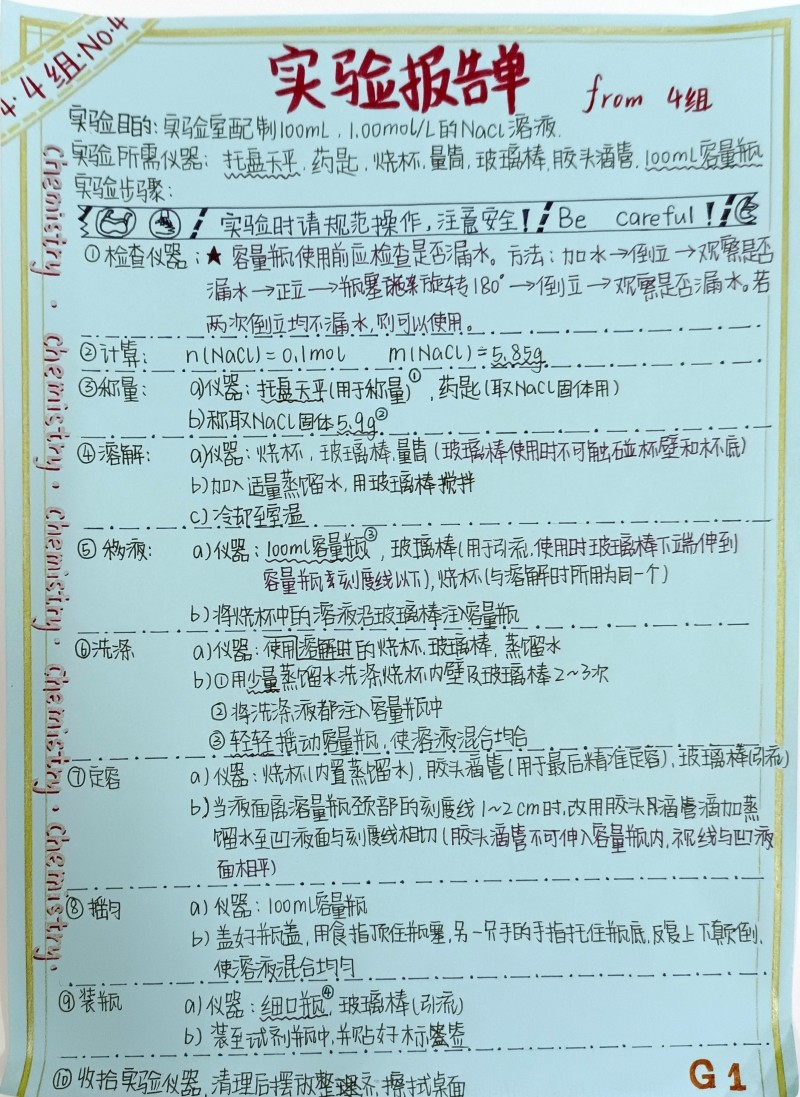 4·4组·No.4
实验报告单
from 4组
实验目的:实验室配制100mL,1.00mol/L的NaCl溶液.
实验所需仪器:托盘天平,药匙,烧杯,量筒,玻璃棒,胶头滴管,100mL容量瓶
实验步骤:
实验时请规范操作,注意安全! Be careful!
①检查仪器:★容量瓶使用前应检查是否漏水。方法:加水→倒立→观察是否
漏水→正立→瓶塞旋转180°→倒立→观察是否漏水。若
两次倒立均不漏水,则可以使用。
②计算: n(NaCl)=0.1mol m(NaCl)=5.85g
③称量: a)仪器:托盘天平(用于称量)①,药匙(取NaCl固体用)
b)称取NaCl固体5.9g②
④溶解: a)仪器:烧杯,玻璃棒,量筒(玻璃棒使用时不可触碰杯壁和杯底)
b)加入适量蒸馏水,用玻璃棒搅拌
c)冷却至室温
⑤移液: a)仪器:100ml容量瓶③,玻璃棒(用于引流,使用时玻璃棒下端伸到
容量瓶刻度线以下),烧杯(与溶解时所用为同一个)
b)将烧杯中的溶液沿玻璃棒注入容量瓶
⑥洗涤 a)仪器:使用溶解时的烧杯,玻璃棒,蒸馏水
b)①用少量蒸馏水洗涤烧杯内壁及玻璃棒2~3次
②将洗涤液都注入容量瓶中
③轻轻摇动容量瓶,使溶液混合均匀
⑦定容 a)仪器:烧杯(内置蒸馏水),胶头滴管(用于最后精准定容),玻璃棒(引流)
b)当液面离溶量瓶颈部的刻度线1~2cm时,改用胶头滴管滴加蒸
馏水至凹液面与刻度线相切(胶头滴管不可伸入容量瓶内,视线与凹液
面相平)
⑧摇匀 a)仪器:100ml容量瓶
b)盖好瓶盖,用食指顶住瓶塞,另一只手的手指托住瓶底,反复上下颠倒,
使溶液混合均匀
⑨装瓶 a)仪器:细口瓶④,玻璃棒(引流)
b)装至试剂瓶中,并贴好标签
⑩收拾实验仪器,清理后摆放整齐,擦拭桌面
G1
chemistry·chemistry·chemistry·chemistry·chemistry·chemistry.